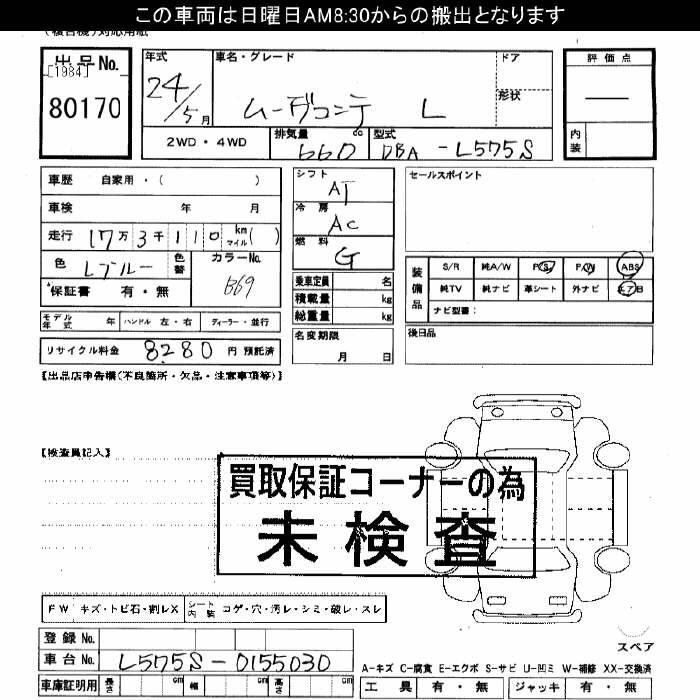 この車両は日曜日AM8:30からの搬出となります
(複合機)対応用紙
出品No.
[1984]
80170
年式
24/5月
車名・グレード
ムーヴコンテ L
ドア
形状
2WD・4WD
排気量 cc
660
型式
DBA-L575S
評価点
内装
車歴 自家用・( )
車検 年 月
走行 17万3千110 km マイル( )
色 Lブルー 色替 カラーNo. B69
保証書 有・無
モデル年式 年 ハンドル 左・右 ディーラー・並行
リサイクル料金 8280 円 預託済
シフト AT
冷房 AC
燃料 G
乗車定員 名
積載量 kg
総重量 kg
名変期限
月 日
セールスポイント
装備品
S/R 純A/W P/S P/W ABS
純TV 純ナビ 革シート 外ナビ
ナビ型番:
後日品
【出品店申告欄(不良箇所・欠品・注意事項等)】
【検査員記入】
買取保証コーナーの為
未検査
FW キズ・トビ石・割レX シート内装 コゲ・穴・汚レ・シミ・破レ・スレ
登録No.
車台No. L575S-0155030
スペア
A-キズ C-腐食 E-エクボ S-サビ U-凹ミ W-補修 XX-交換済
車庫証明用 長さ cm 幅 cm 高さ cm
工具 有・無 ジャッキ 有・無